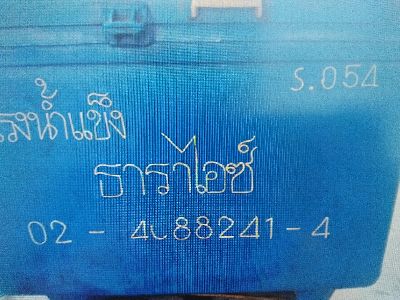 ร.054
รงน้ำแข็ง
ธาราไอซ์
02 - 4088241 - 4